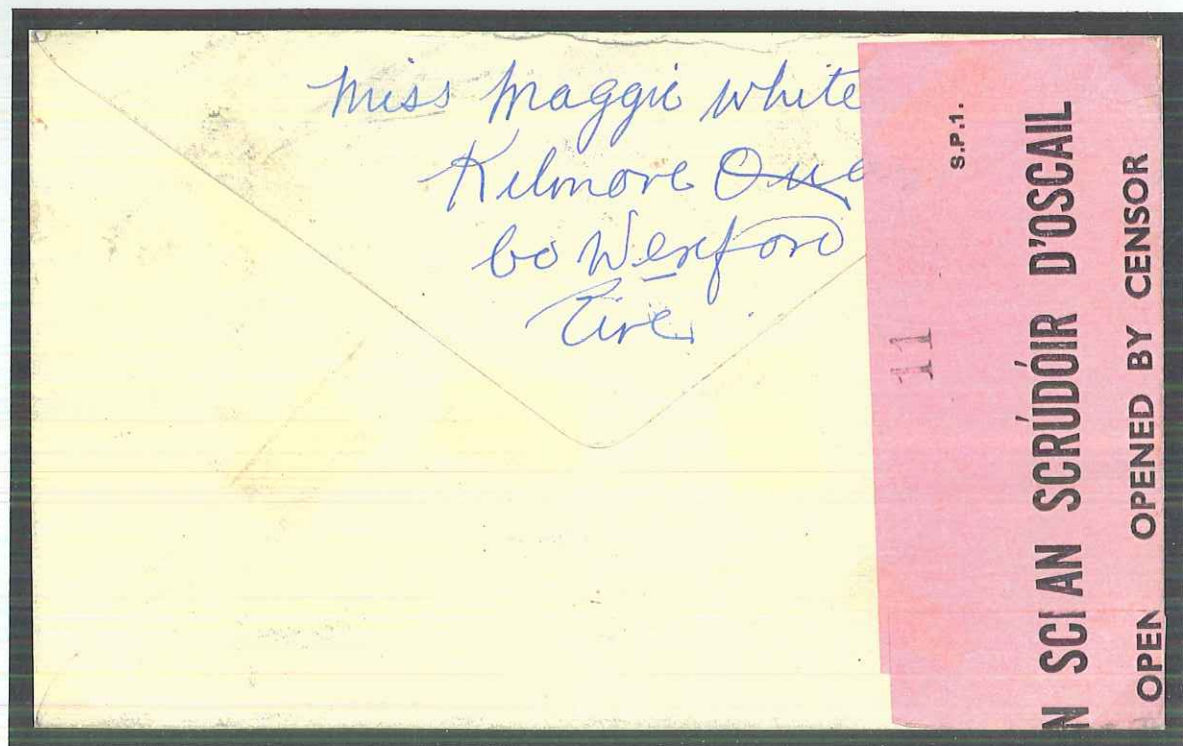 Miss Maggie White
Kilmore Que
Co Wexford
Eire
S.P.1.
11
N SCI AN SCRÚDÓIR D'OSCAIL
OPEN OPENED BY CENSOR